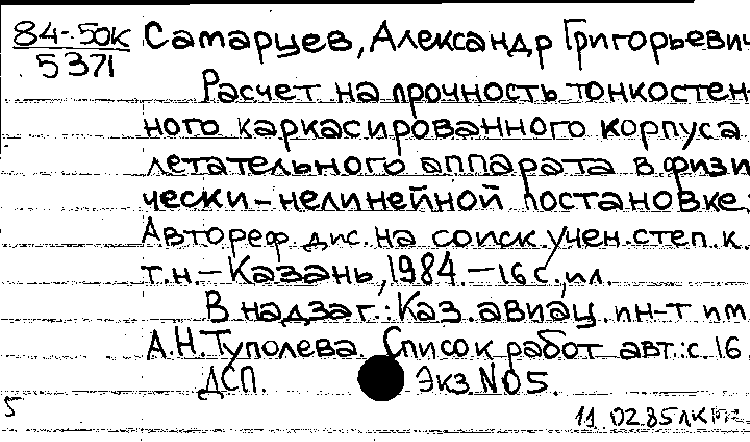 84-50к Самарцев, Александр Григорьевич
5371
Расчет на прочность тонкостен-
ного каркасированного корпуса
летательного аппарата в физи
чески-нелинейной постановке:
Автореф. дис. на соиск. учен. степ. к.
т.н. - Казань, 1984. - 16 с., ил.
В надзаг.: Каз. авиац. ин-т им.
А.Н. Туполева. Список работ авт.: с. 16
ДСП. Экз. №05.
5
11.02.85